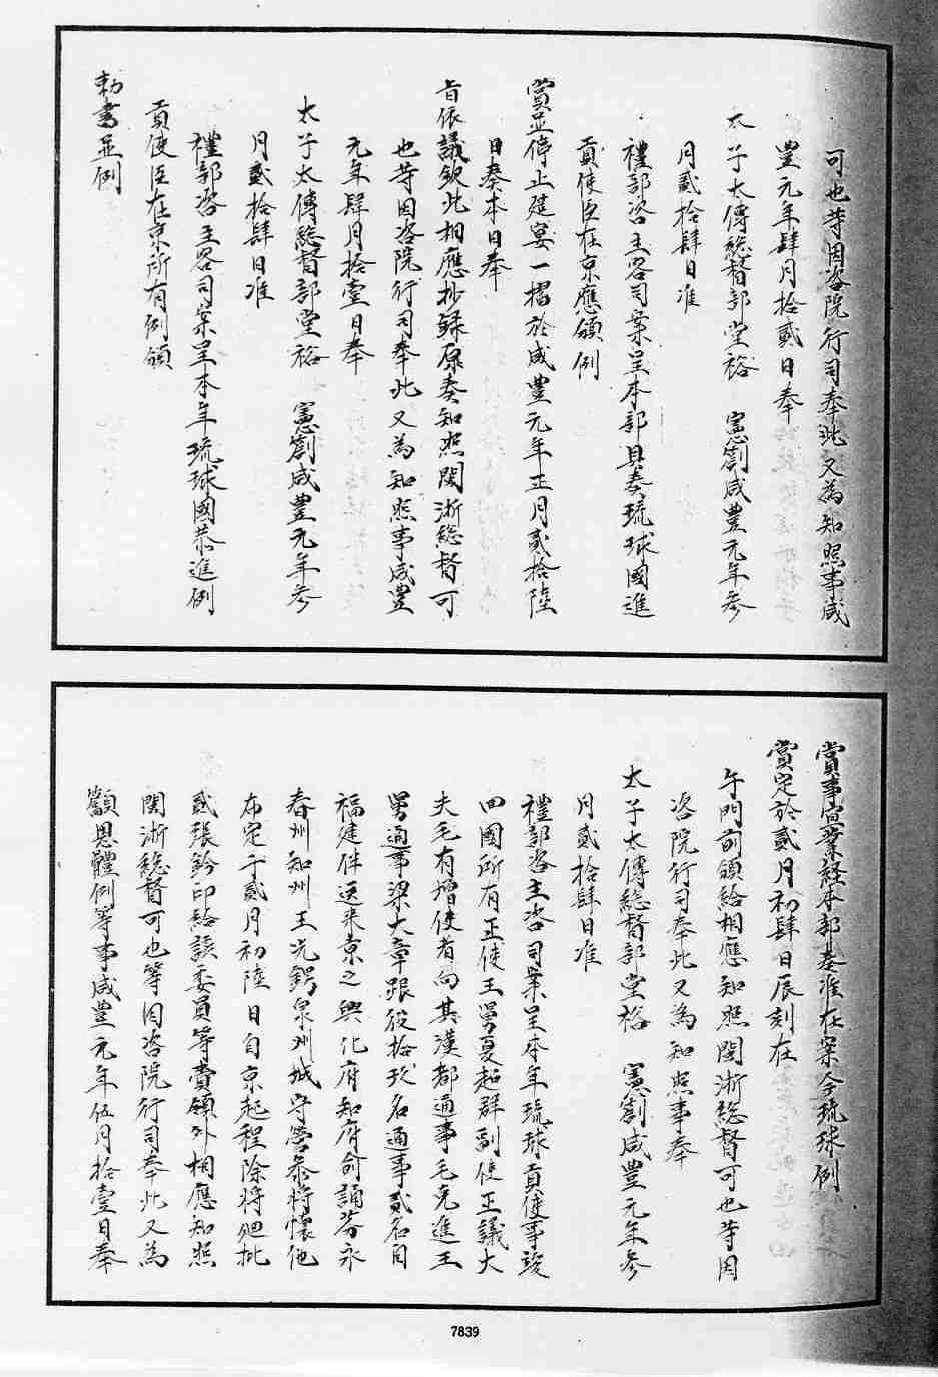 可也等因咨院行司奉此又為知照事咸
豐元年肆月拾貳日奉
太子太傅總督部堂裕　憲劄咸豐元年參
月貳拾肆日准
禮部咨主客司案呈本部具奏琉球國進
貢使臣在京應頒例
賞並停止筵宴一摺於咸豐元年正月貳拾陸
日奏本日奉
旨依議欽此相應抄錄原奏知照閩浙總督可
也等因咨院行司奉此又為知照事咸豐
元年肆月拾壹日奉
太子太傅總督部堂裕　憲劄咸豐元年參
月貳拾肆日准
禮部咨主客司案呈本年琉球國恭進例
貢使臣在京所有例頒
勅書並例
賞事宜業經本部奏准在案今琉球例
賞定於貳月初肆日辰刻在
午門前頒給相應知照閩浙總督可也等因
咨院行司奉此又為知照事奉
太子太傅總督部堂裕　憲劄咸豐元年參
月貳拾肆日准
禮部咨主咨司案呈本年琉球貢使事竣
回國所有正使王舅夏超群副使正議大
夫毛有增使者向其漢都通事毛克進王
舅通事梁大章跟役拾玖名通事貳名自
福建伴送來京之興化府知府俞誦芬永
春州知州王光鍔泉州城守營參將懷他
布定于貳月初陸日自京起程除將兵批
貳張鈐印給該委員等賫領外相應知照
閩浙總督可也等因咨院行司奉此又為
籲恩體例等事咸豐元年伍月拾壹日奉
7839